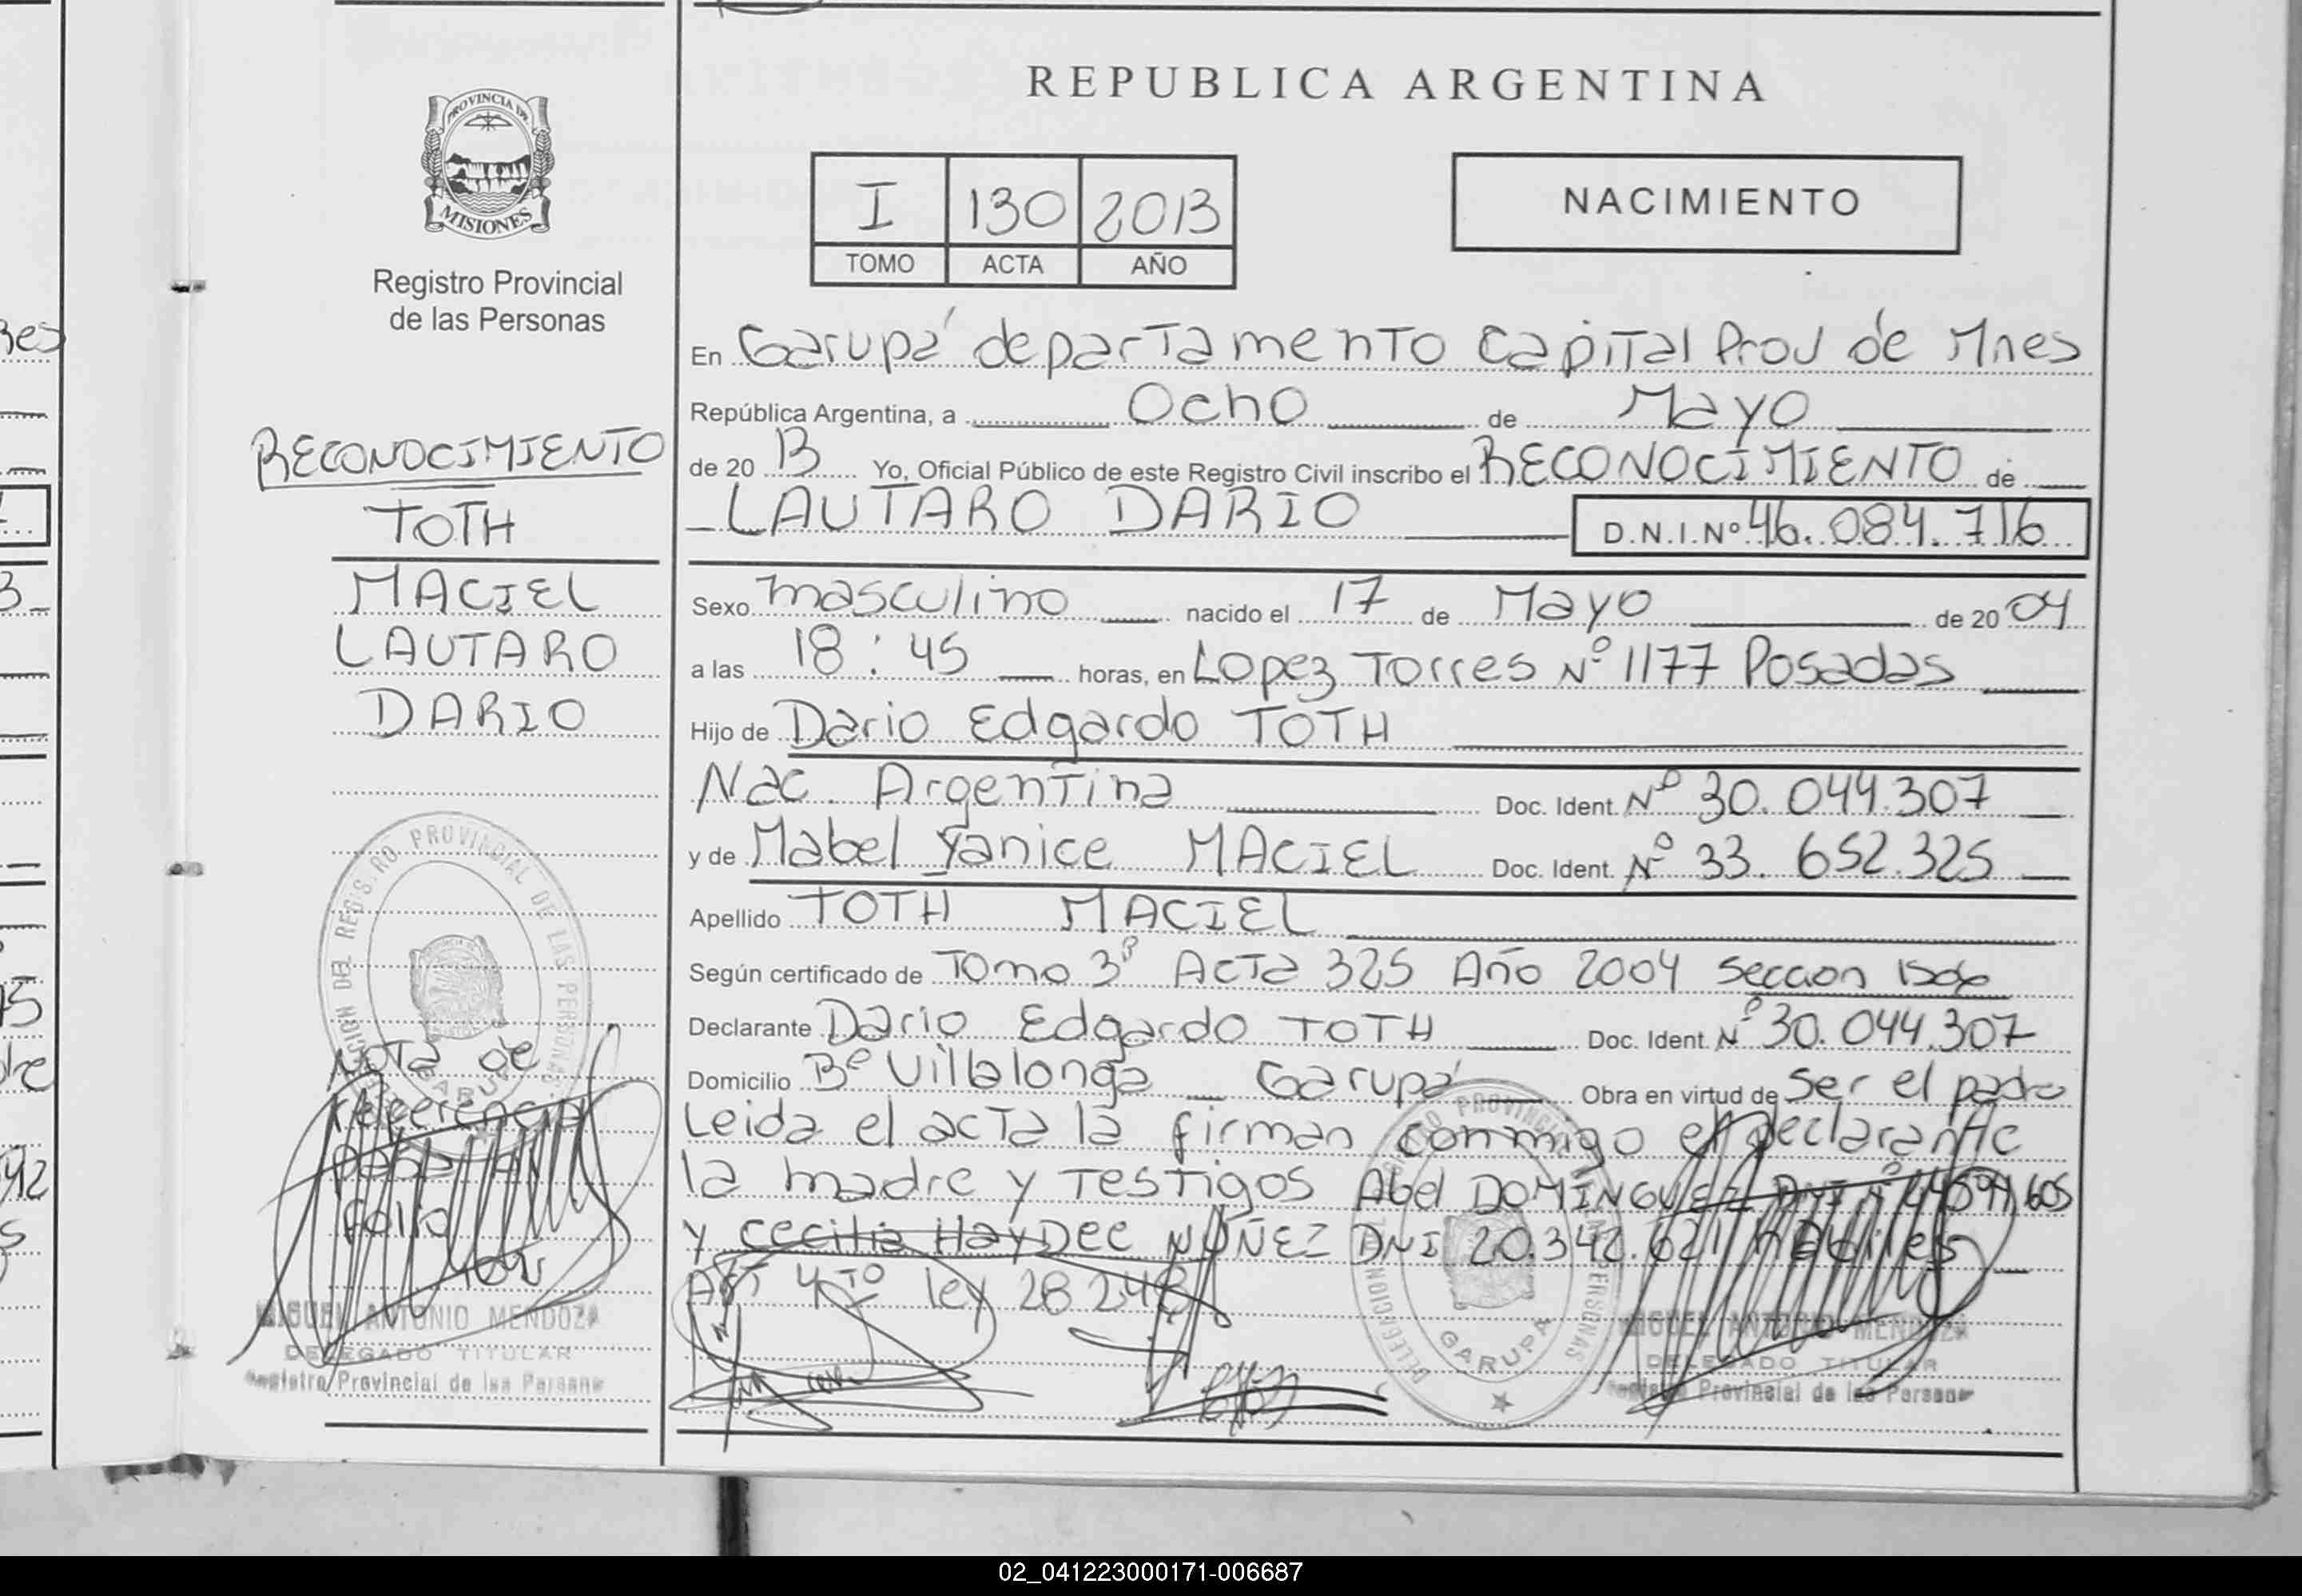 REPUBLICA ARGENTINA
PROVINCIA DE
MISIONES
Registro Provincial
de las Personas
I 130 2013
TOMO ACTA AÑO
NACIMIENTO
RECONOCIMIENTO
TOTH
MACIEL
LAUTARO
DARIO
Nota de
referencia
folio
MIGUEL ANTONIO MENDOZA
DELEGADO TITULAR
Registro Provincial de las Personas
En Garupá departamento Capital Prov de Mnes
República Argentina, a Ocho de Mayo
de 20 13 Yo, Oficial Público de este Registro Civil inscribo el RECONOCIMIENTO de
LAUTARO DARIO D.N.I.Nº 46.084.716
Sexo masculino nacido el 17 de Mayo de 20 04
a las 18:45 horas, en Lopez Torres Nº 1177 Posadas
Hijo de Dario Edgardo TOTH
Nac. Argentina Doc. Ident. Nº 30.044.307
y de Mabel Yanice MACIEL Doc. Ident. Nº 33.652.325
Apellido TOTH MACIEL
Según certificado de Tomo 3º Acta 325 Año 2004 Seccion
Declarante Dario Edgardo TOTH Doc. Ident. Nº 30.044.307
Domicilio Bº Villalonga Garupá Obra en virtud de Ser el padre
Leida el acta la firman conmigo el declarante
la madre y Testigos Abel DOMÍNGUEZ DNI Nº
y Cecilia Haydee NUÑEZ DNI 20.342.621 habiles
Art 4to ley 28248
DELEGACION DEL REGISTRO PROVINCIAL DE LAS PERSONAS
GARUPA
MIGUEL ANTONIO MENDOZA
DELEGADO TITULAR
Registro Provincial de las Personas
02_041223000171-006687